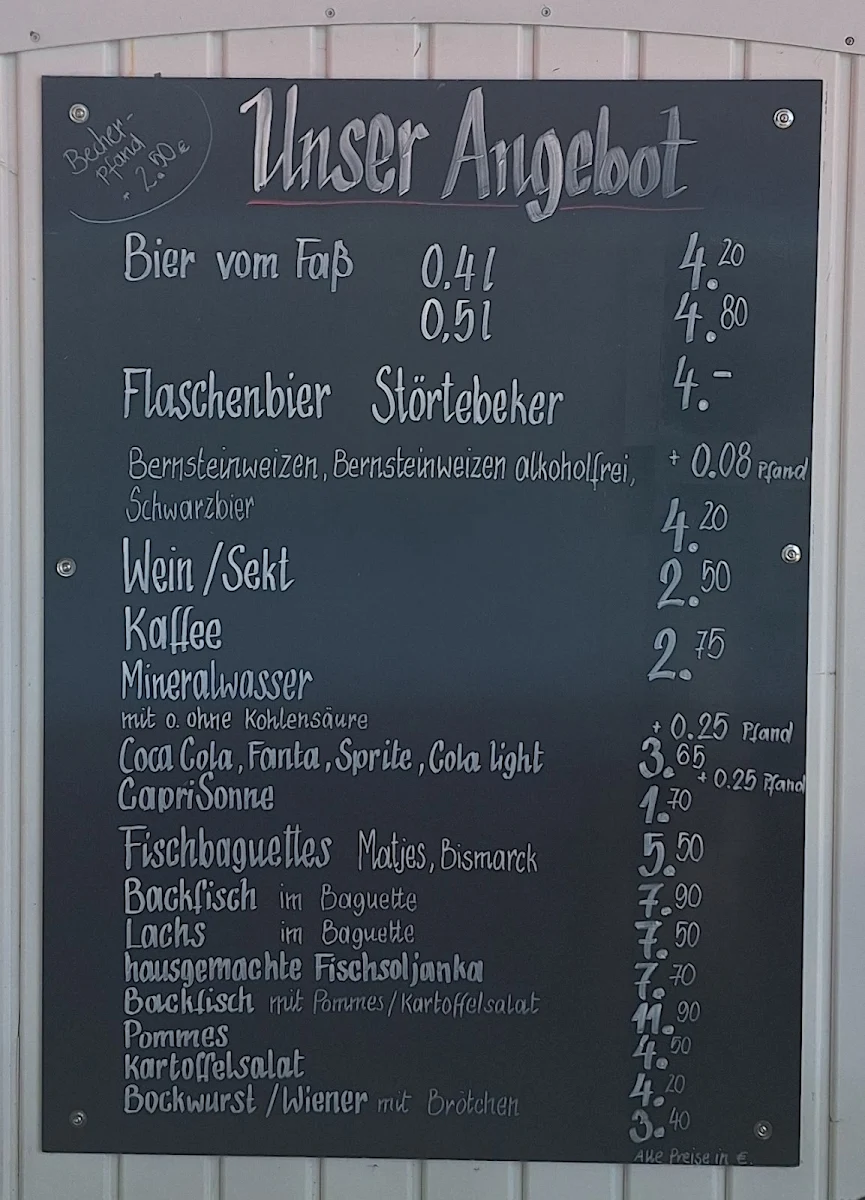 Becher-
Pfand
+ 2.50 €
Unser Angebot
Bier vom Faß 0,4l 4.20
0,5l 4.80
Flaschenbier Störtebeker 4.-
Bernsteinweizen, Bernsteinweizen alkoholfrei, + 0.08 Pfand
Schwarzbier
Wein /Sekt 4.20
Kaffee 2.50
Mineralwasser 2.75
mit o. ohne Kohlensäure + 0.25 Pfand
Coca Cola, Fanta, Sprite, Cola light 3.65
+ 0.25 Pfand
CapriSonne 1.70
Fischbaguettes Matjes, Bismarck 5.50
Backfisch im Baguette 7.90
Lachs im Baguette 7.50
hausgemachte Fischsoljanka 7.70
Backfisch mit Pommes/Kartoffelsalat 11.90
Pommes 4.50
Kartoffelsalat 4.20
Bockwurst /Wiener mit Brötchen 3.40
Alle Preise in €.